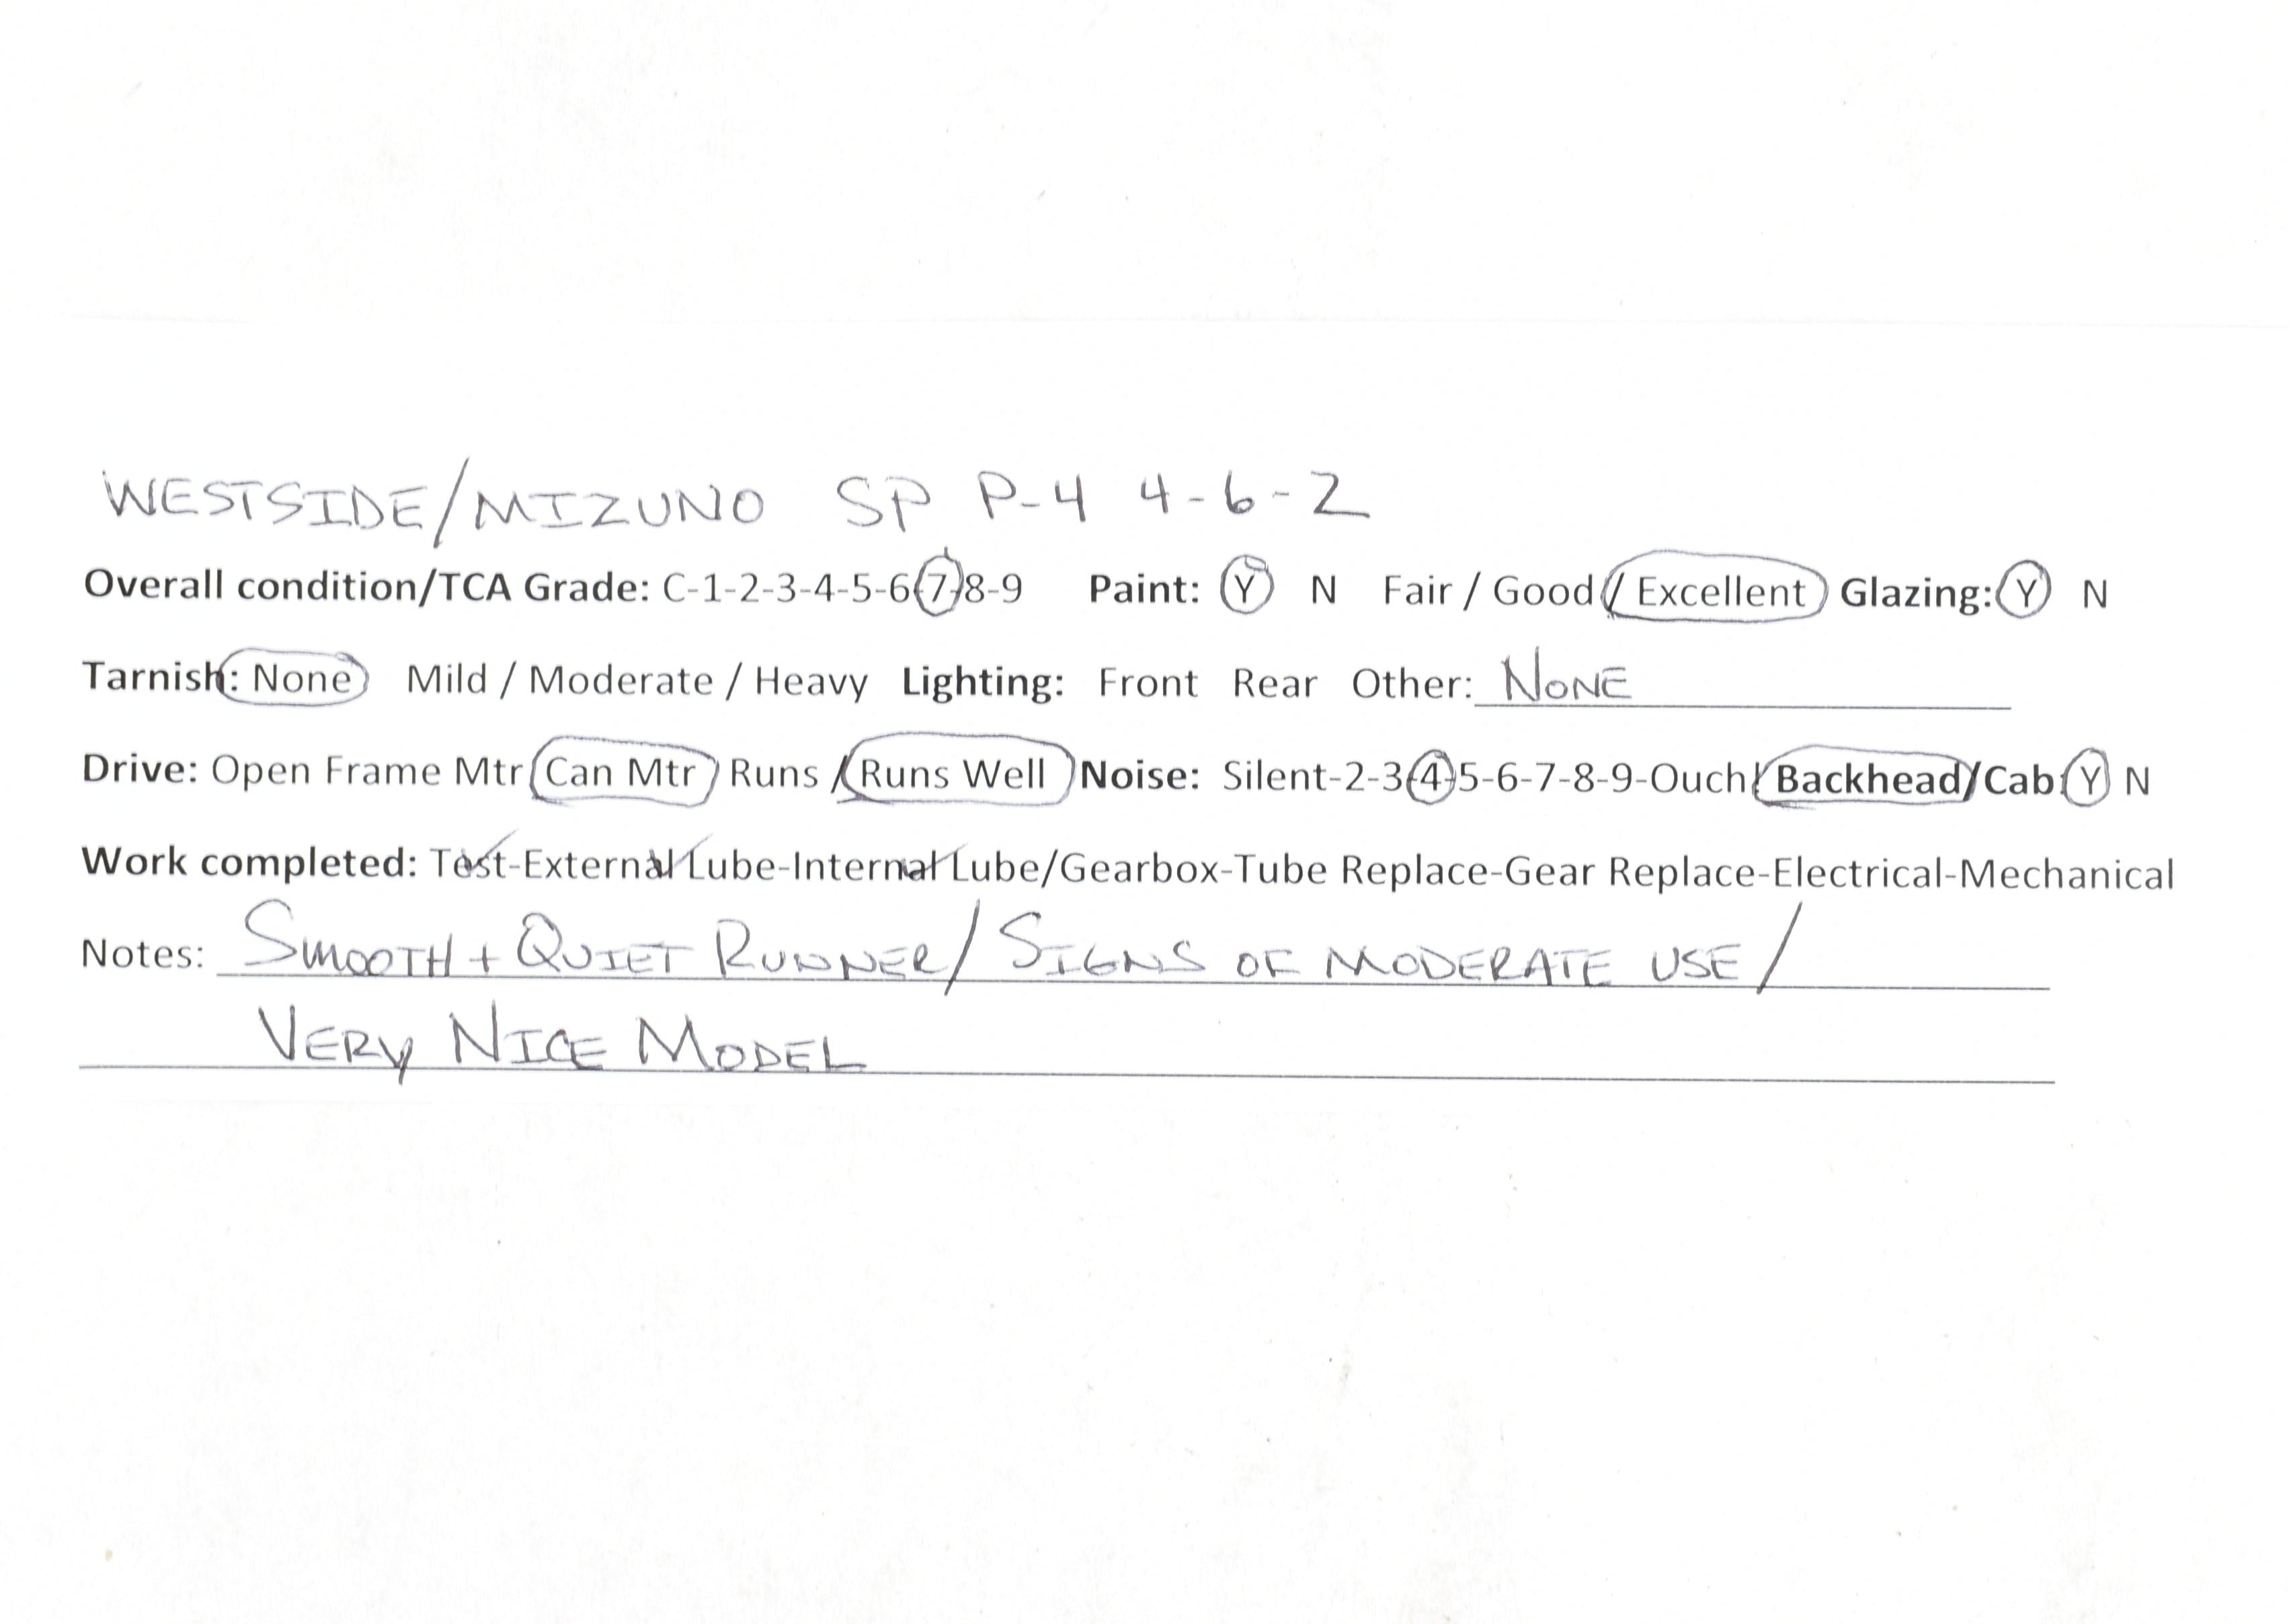 WESTSIDE/MIZUNO SP P-4 4-6-2
Overall condition/TCA Grade: C-1-2-3-4-5-6-7-8-9 Paint: Y N Fair / Good / Excellent Glazing: Y N
Tarnish: None Mild / Moderate / Heavy Lighting: Front Rear Other: NONE
Drive: Open Frame Mtr Can Mtr Runs / Runs Well Noise: Silent-2-3-4-5-6-7-8-9-Ouch/ Backhead/Cab: Y N
Work completed: Test-External Lube-Internal Lube/Gearbox-Tube Replace-Gear Replace-Electrical-Mechanical
Notes: SMOOTH + QUIET RUNNER/SIGNS OF MODERATE USE/
VERY NICE MODEL